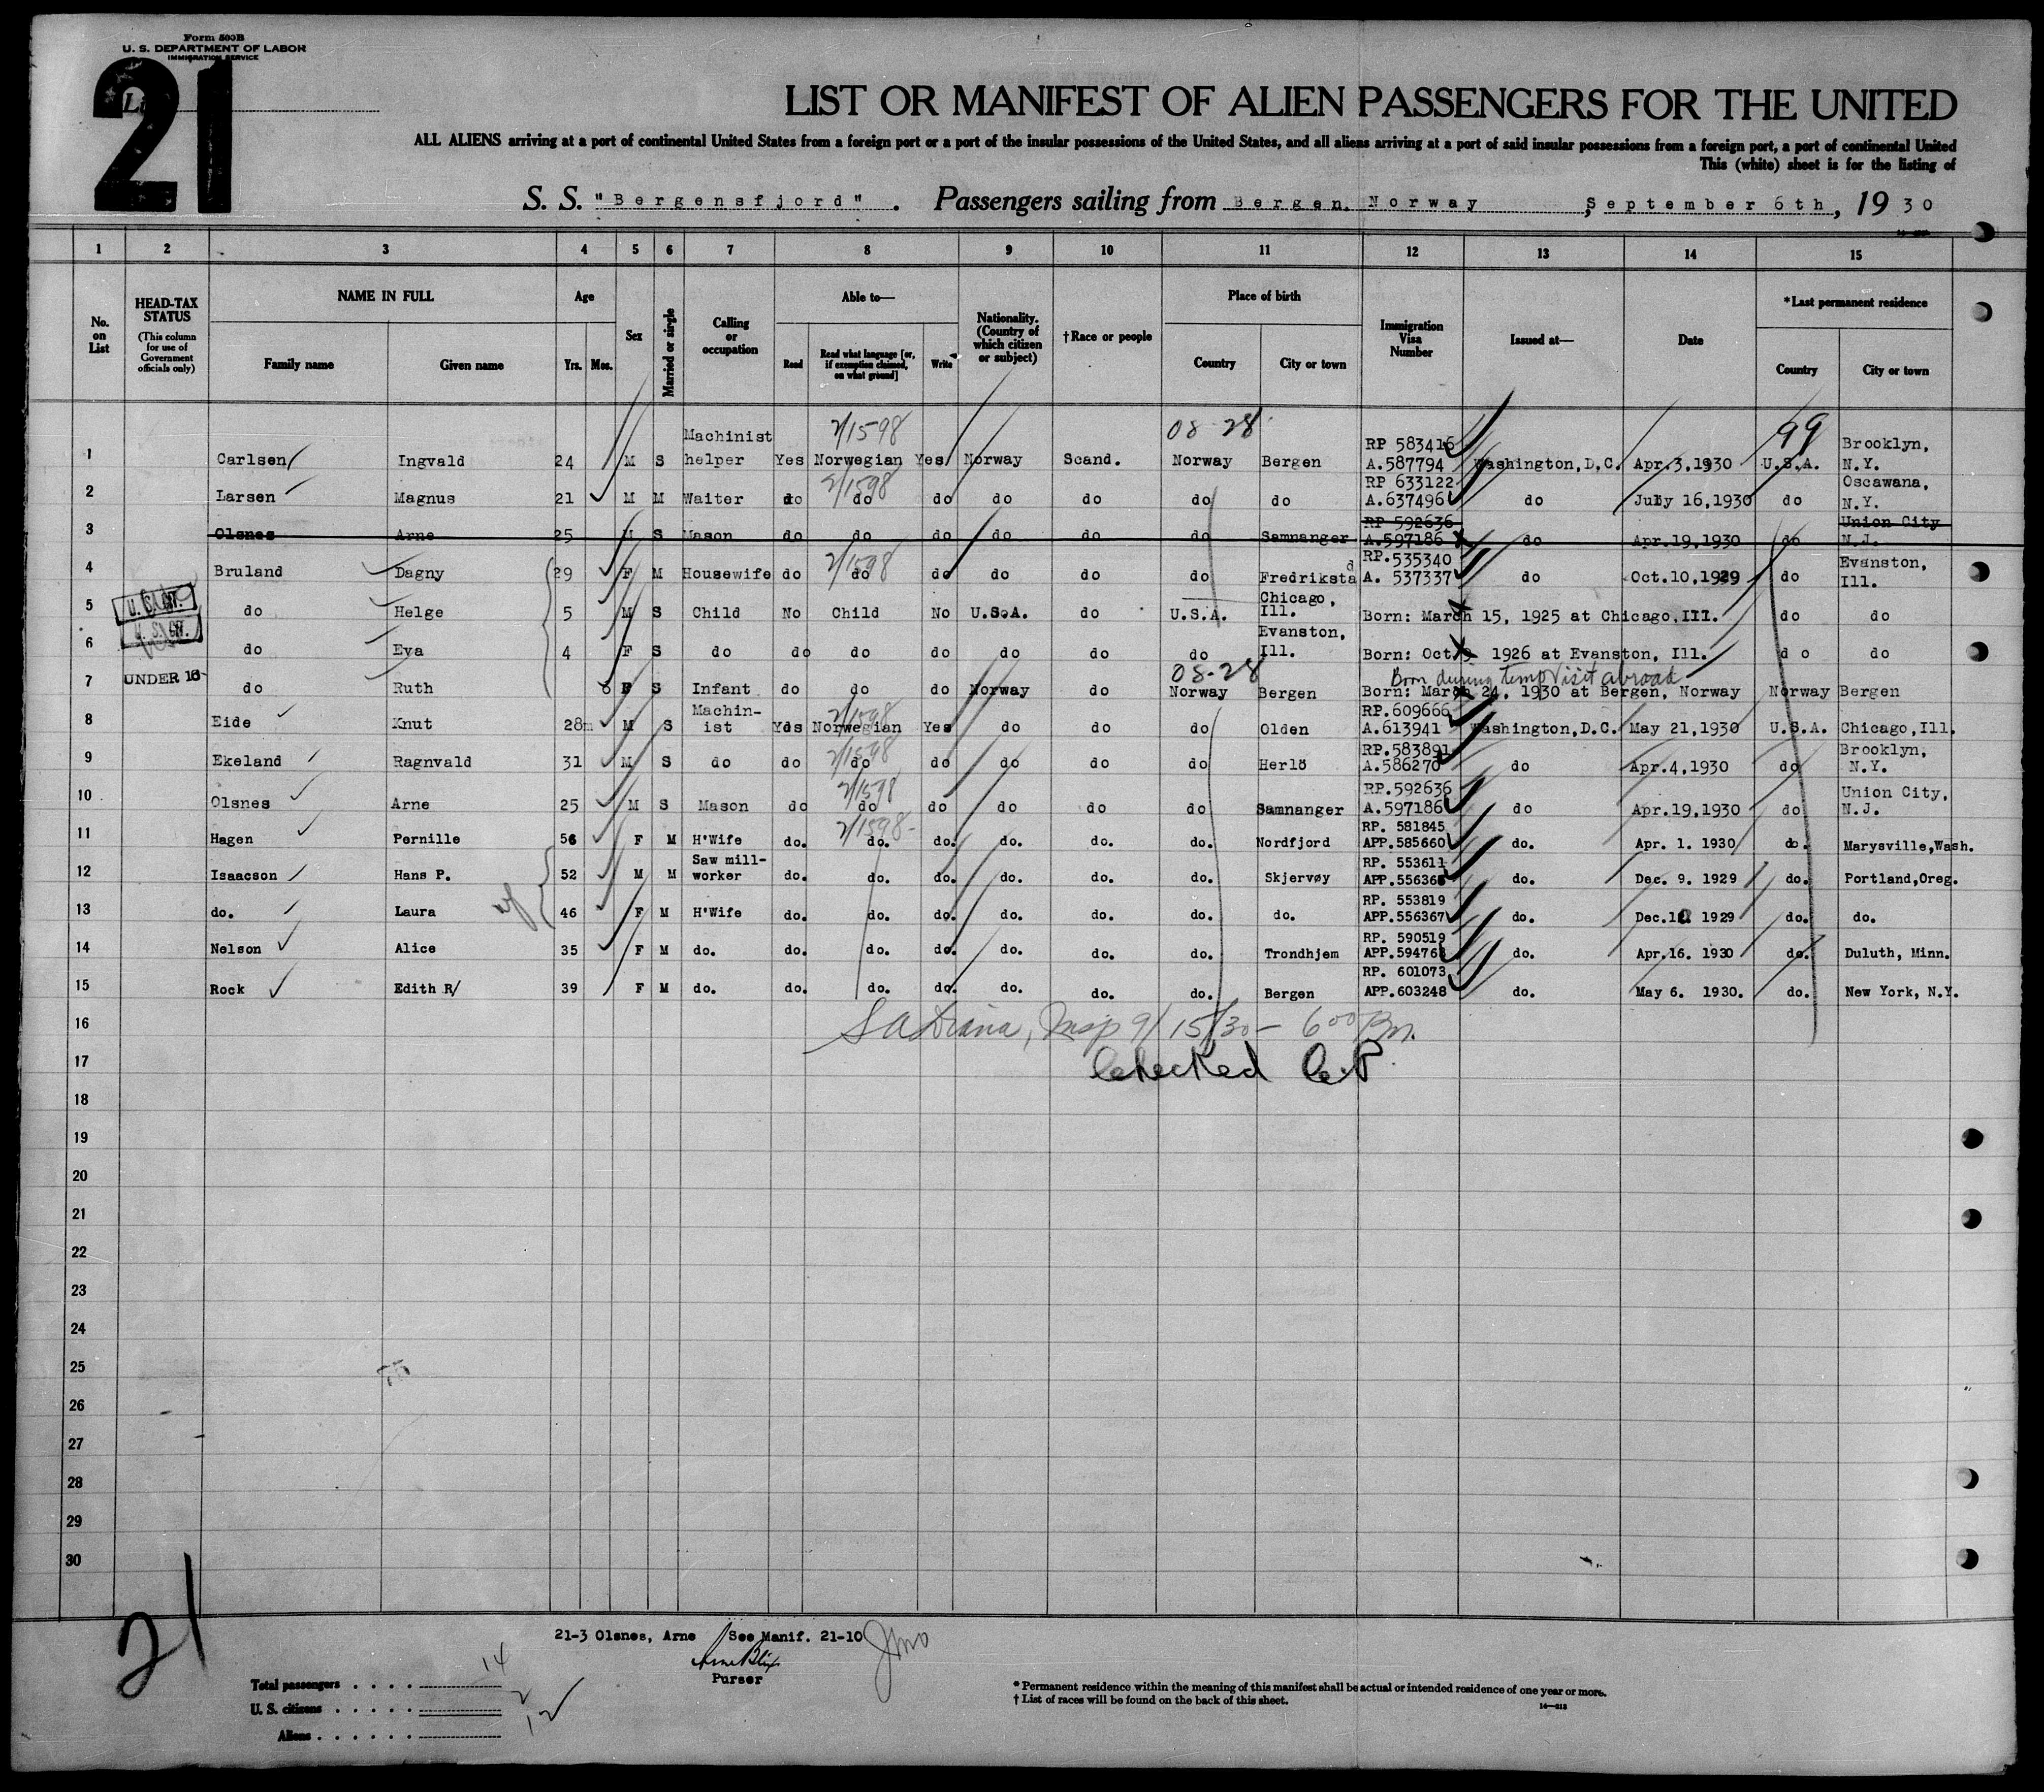 Form 500B
U. S. DEPARTMENT OF LABOR
IMMIGRATION SERVICE
21
LIST OR MANIFEST OF ALIEN PASSENGERS FOR THE UNITED
ALL ALIENS arriving at a port of continental United States from a foreign port or a port of the insular possessions of the United States, and all aliens arriving at a port of said insular possessions from a foreign port, a port of continental United
This (white) sheet is for the listing of
S. S. "Bergensfjord". Passengers sailing from Bergen, Norway, September 6th, 19 30
1 2 3 4 5 6 7 8 9 10 11 12 13 14 15
No. on List
HEAD-TAX STATUS (This column for use of Government officials only)
NAME IN FULL Family name Given name
Age Yrs. Mos.
Sex
Married or single
Calling or occupation
Able to— Read Read what language [or, if exemption claimed, on what ground] Write
Nationality. (Country of which citizen or subject)
†Race or people
Place of birth Country City or town
Immigration Visa Number
Issued at—
Date
*Last permanent residence Country City or town
2/1598 08-28 99
1 Carlsen Ingvald 24 M S Machinist helper Yes Norwegian Yes Norway Scand. Norway Bergen RP 583416 A.587794 Washington,D.C. Apr.3,1930 U.S.A. Brooklyn, N.Y.
2/1598
2 Larsen Magnus 21 M M Waiter do do do do do do do RP 633122 A.637496 do July 16,1930 do Oscawana, N.Y.
3 Olsnes Arne 25 M S Mason do do do do do do Samnanger RP 592636 A.597186 do Apr.19,1930 do Union City N.J.
2/1598
4 Bruland Dagny 29 F M Housewife do do do do do do Fredrikstad RP.535340 A. 537337 do Oct.10,1929 do Evanston, Ill.
U. S. CIT.
5 do Helge 5 M S Child No Child No U.S.A. do U.S.A. Chicago, Ill. Born: March 15, 1925 at Chicago,Ill. do do
U. S. CIT.
6 do Eva 4 F S do do do do do do do Evanston, Ill. Born: Oct.9 1926 at Evanston, Ill. do do
08-28 Born during temp visit abroad
7 UNDER 16 do Ruth 6 F S Infant do do do Norway do Norway Bergen Born: March 24, 1930 at Bergen, Norway Norway Bergen
2/1598
8 Eide Knut 28m M S Machin- ist Yes Norwegian Yes do do do Olden RP.609666 A.613941 Washington,D.C. May 21,1930 U.S.A. Chicago,Ill.
2/1598
9 Ekeland Ragnvald 31 M S do do do do do do do Herlö RP.583891 A.586270 do Apr.4,1930 do Brooklyn, N.Y.
2/1598
10 Olsnes Arne 25 M S Mason do do do do do do Samnanger RP.592636 A.597186 do Apr.19,1930 do Union City, N.J.
2/1598-
11 Hagen Pernille 56 F M H'Wife do. do. do. do. do. do. Nordfjord RP. 581845 APP.585660 do. Apr. 1. 1930 do. Marysville,Wash.
12 Isaacson Hans P. 52 M M Saw mill- worker do. do. do. do. do. do. Skjervøy RP. 553611 APP.556366 do. Dec. 9. 1929 do. Portland,Oreg.
13 do. Laura 46 F M H'Wife do. do. do. do. do. do. do. RP. 553819 APP.556367 do. Dec. 1929 do. do.
14 Nelson Alice 35 F M do. do. do. do. do. do. do. Trondhjem RP. 590519 APP.59476 do. Apr.16. 1930 do. Duluth, Minn.
15 Rock Edith R/ 39 F M do. do. do. do. do. do. do. Bergen RP. 601073 APP.603248 do. May 6. 1930. do. New York, N.Y.
16 Insp 9/15/30- 6 00 Pm.
17 Checked C.P.
18
19
20
21
22
23
24
25
26
27
28
29
30
21
21-3 Olsnes, Arne See Manif. 21-10
Arne Blix
Purser
Total passengers . . . . 14
U. S. citizens . . . . . 2
Aliens . . . . . . 12
* Permanent residence within the meaning of this manifest shall be actual or intended residence of one year or more.
† List of races will be found on the back of this sheet.
14—212